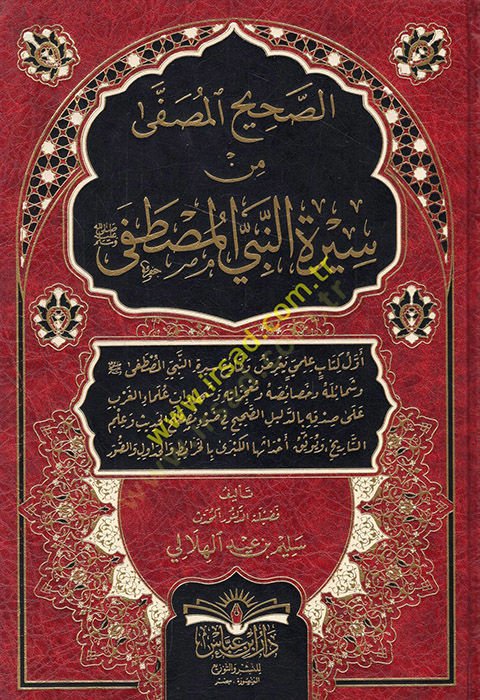 الصَّحِيحُ المُصَفَّى
مِنْ
سِيرَةِ النَّبِيِّ المُصْطَفَى ﷺ
أوَّلُ كِتَابٍ عِلْمِيٍّ يَعْرِضُ سِيرَةَ النَّبِيِّ المُصْطَفَى ﷺ
وَشَمَائِلَهُ وَخَصَائِصَهُ وَمُعْجِزَاتِهِ عُلَمَاءِ الغَرْبِ
عَلَى صِدْقِهِ بِالدَّلِيلِ الصَّحِيحِ وَعِلْمِ
التَّارِيخِ، وَيُوَثِّقُ أَحْدَاثَهَا الكُبْرَى بِالخَرَائِطِ وَالجَدَاوِلِ وَالصُّوَرِ
تَأليف
فَضِيلَة الدكتور المحدث
سَلِيم بْن عِيد الهِلَالِي
دَارُ ابْنِ عَبَّاسٍ
لِلنَّشْرِ وَالتَّوْزِيعِ
المنصورة - مصر
www.irsad.com.tr